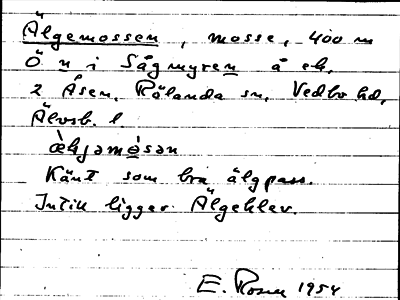 Älgemossen, mosse, 400 m
Ö n i Sågmyren å ek.
2 Åsen, Rölanda sn, Vedbo hd,
Älvsb. l.
æ̀ljəmòsən
Känt som bra älgpass.
Intill ligger Älgeklev.
E. Rosen 1954